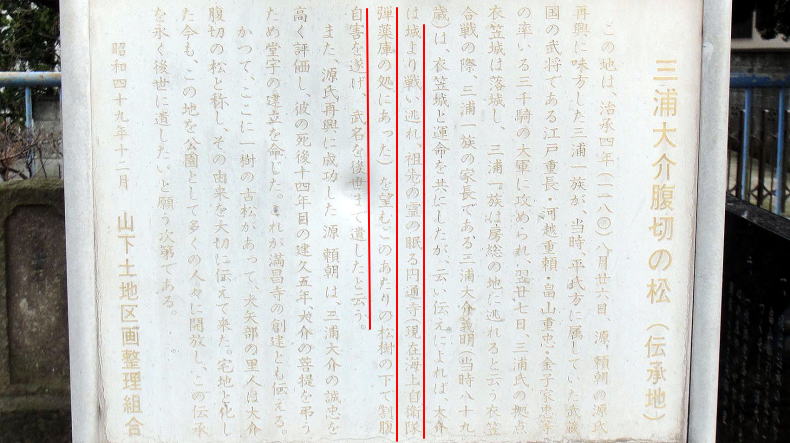 三浦大介腹切の松（伝承地）
この地は、治承四年（一一八〇）八月廿六日、源頼朝の源氏
再興に味方した三浦一族が、当時、平氏方に属していた武蔵
国の武将である江戸重長・河越重頼・畠山重忠・金子家忠等
の率いる三千騎の大軍に攻められ、翌廿七日、三浦氏の拠点
衣笠城は落城し、三浦一族は房総の地に逃れると云う衣笠
合戦の際、三浦一族の家長である三浦大介義明（当時八十九
歳）は、衣笠城と運命を共にしたが、云い伝えによれば、大介
は城より戦い逃れ、祖先の霊の眠る円通寺（現在海上自衛隊
弾薬庫の処にあった）を望むこのあたりの松樹の下で割腹
自害を遂げ、武名を後世まで遺したと云う。
また、源氏再興に成功した源頼朝は、三浦大介の誠忠を
高く評価し、彼の死後十四年目の建久五年、大介の菩提を弔う
ため堂宇の建立を命じた。これが満昌寺の創建とも伝える。
かつて、ここに一樹の古松があって、大矢部の里人は大介
腹切の松と称し、その由来を大切に伝えて来た。宅地と化し
た今も、この地を公園として多くの人々に開放し、この伝承
を永く後世に遺したいと願う次第である。
昭和四十九年十二月　山下土地区画整理組合